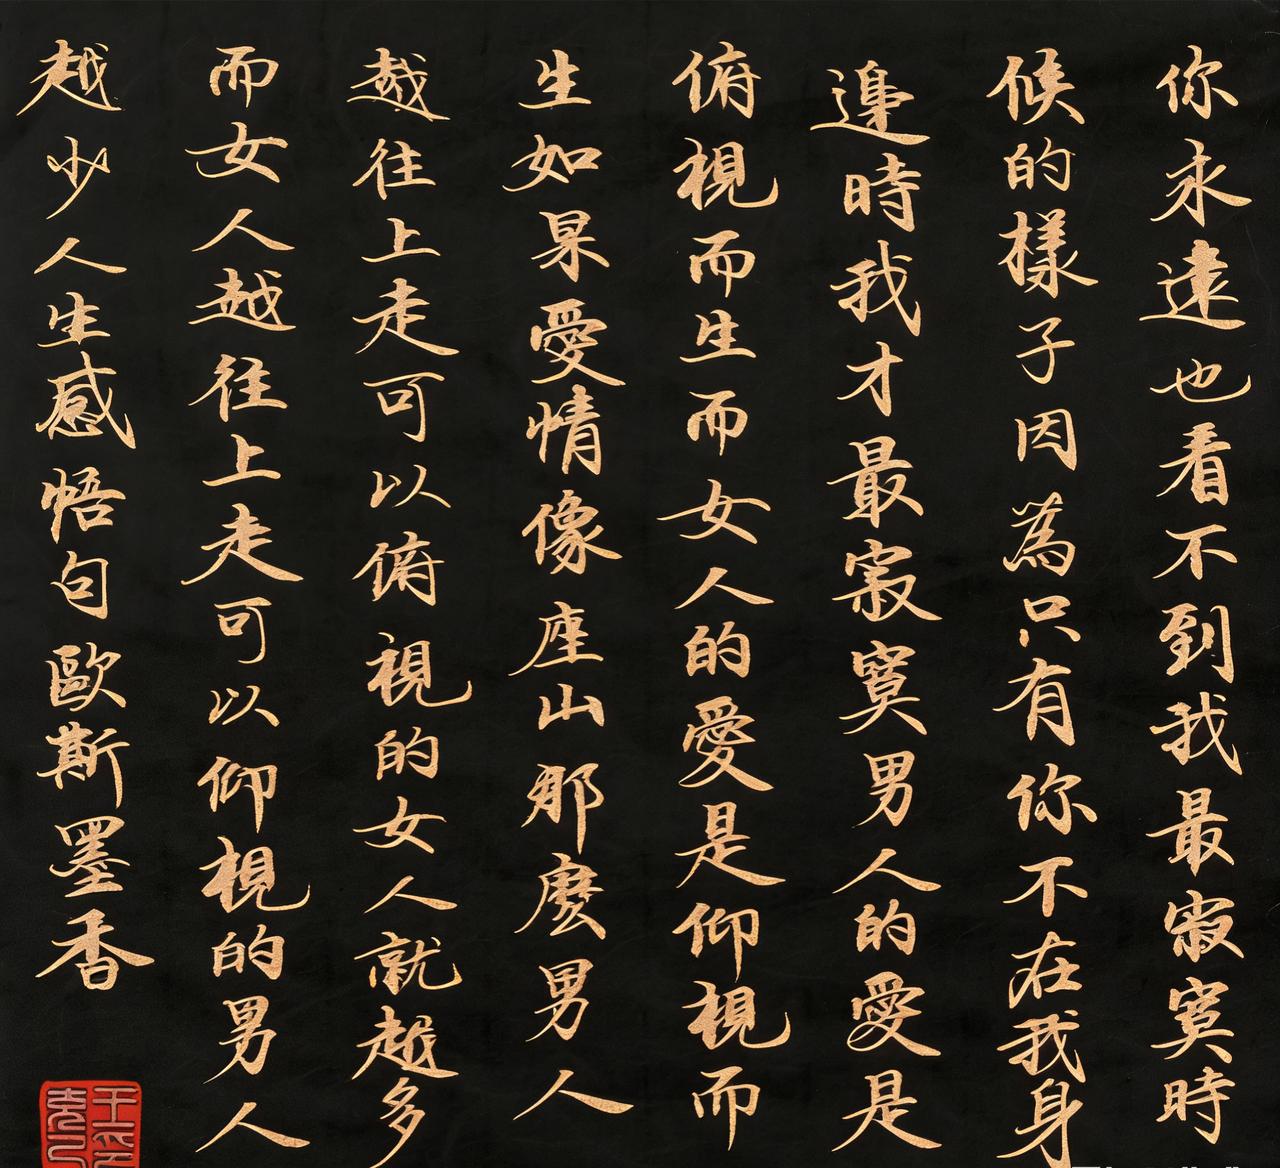 你永遠也看不到我最寂寞時
候的樣子因為只有你不在我身
邊時我才最寂寞男人的愛是
俯視而生而女人的愛是仰視而
生如果愛情像座山那麼男人
越往上走可以俯視的女人就越多
而女人越往上走可以仰視的男人
越少人生感悟句歐斯墨香